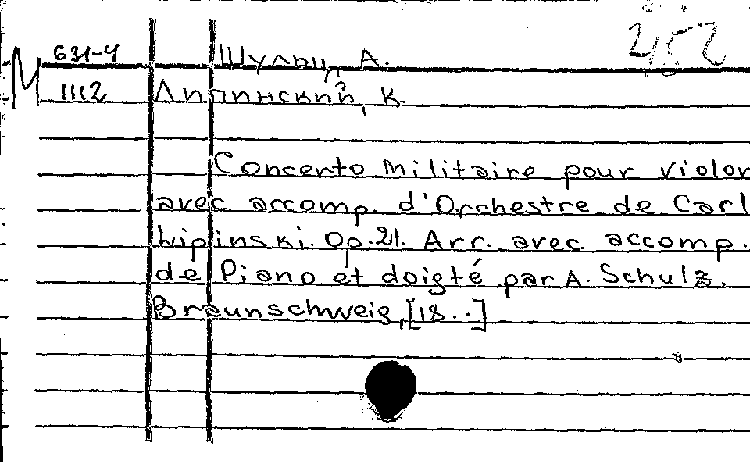 452
631-4 Шульц, А.
М 1112 Липинский, К.
Concerto militaire pour violon
avec accomp. d'Orchestre de Carl
Lipinski. Op. 21. Arr. avec accomp.
de Piano et doigté par A. Schulz.
Braunschweig, [18..]